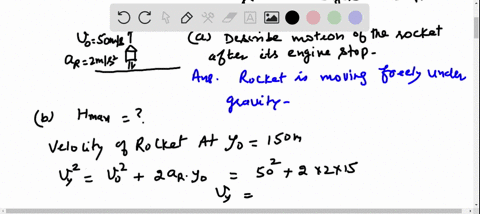 U₀=50m/s ↑
a_R=2m/s²
(a) Describe motion of the rocket
after its engine stop-
Ans. Rocket is moving freely under
gravity-
(b) Hmax = ?
Velocity of Rocket At y₀ = 150m
U_y² = U₀² + 2a_R.y₀ = 50² + 2×2×15
U_y =